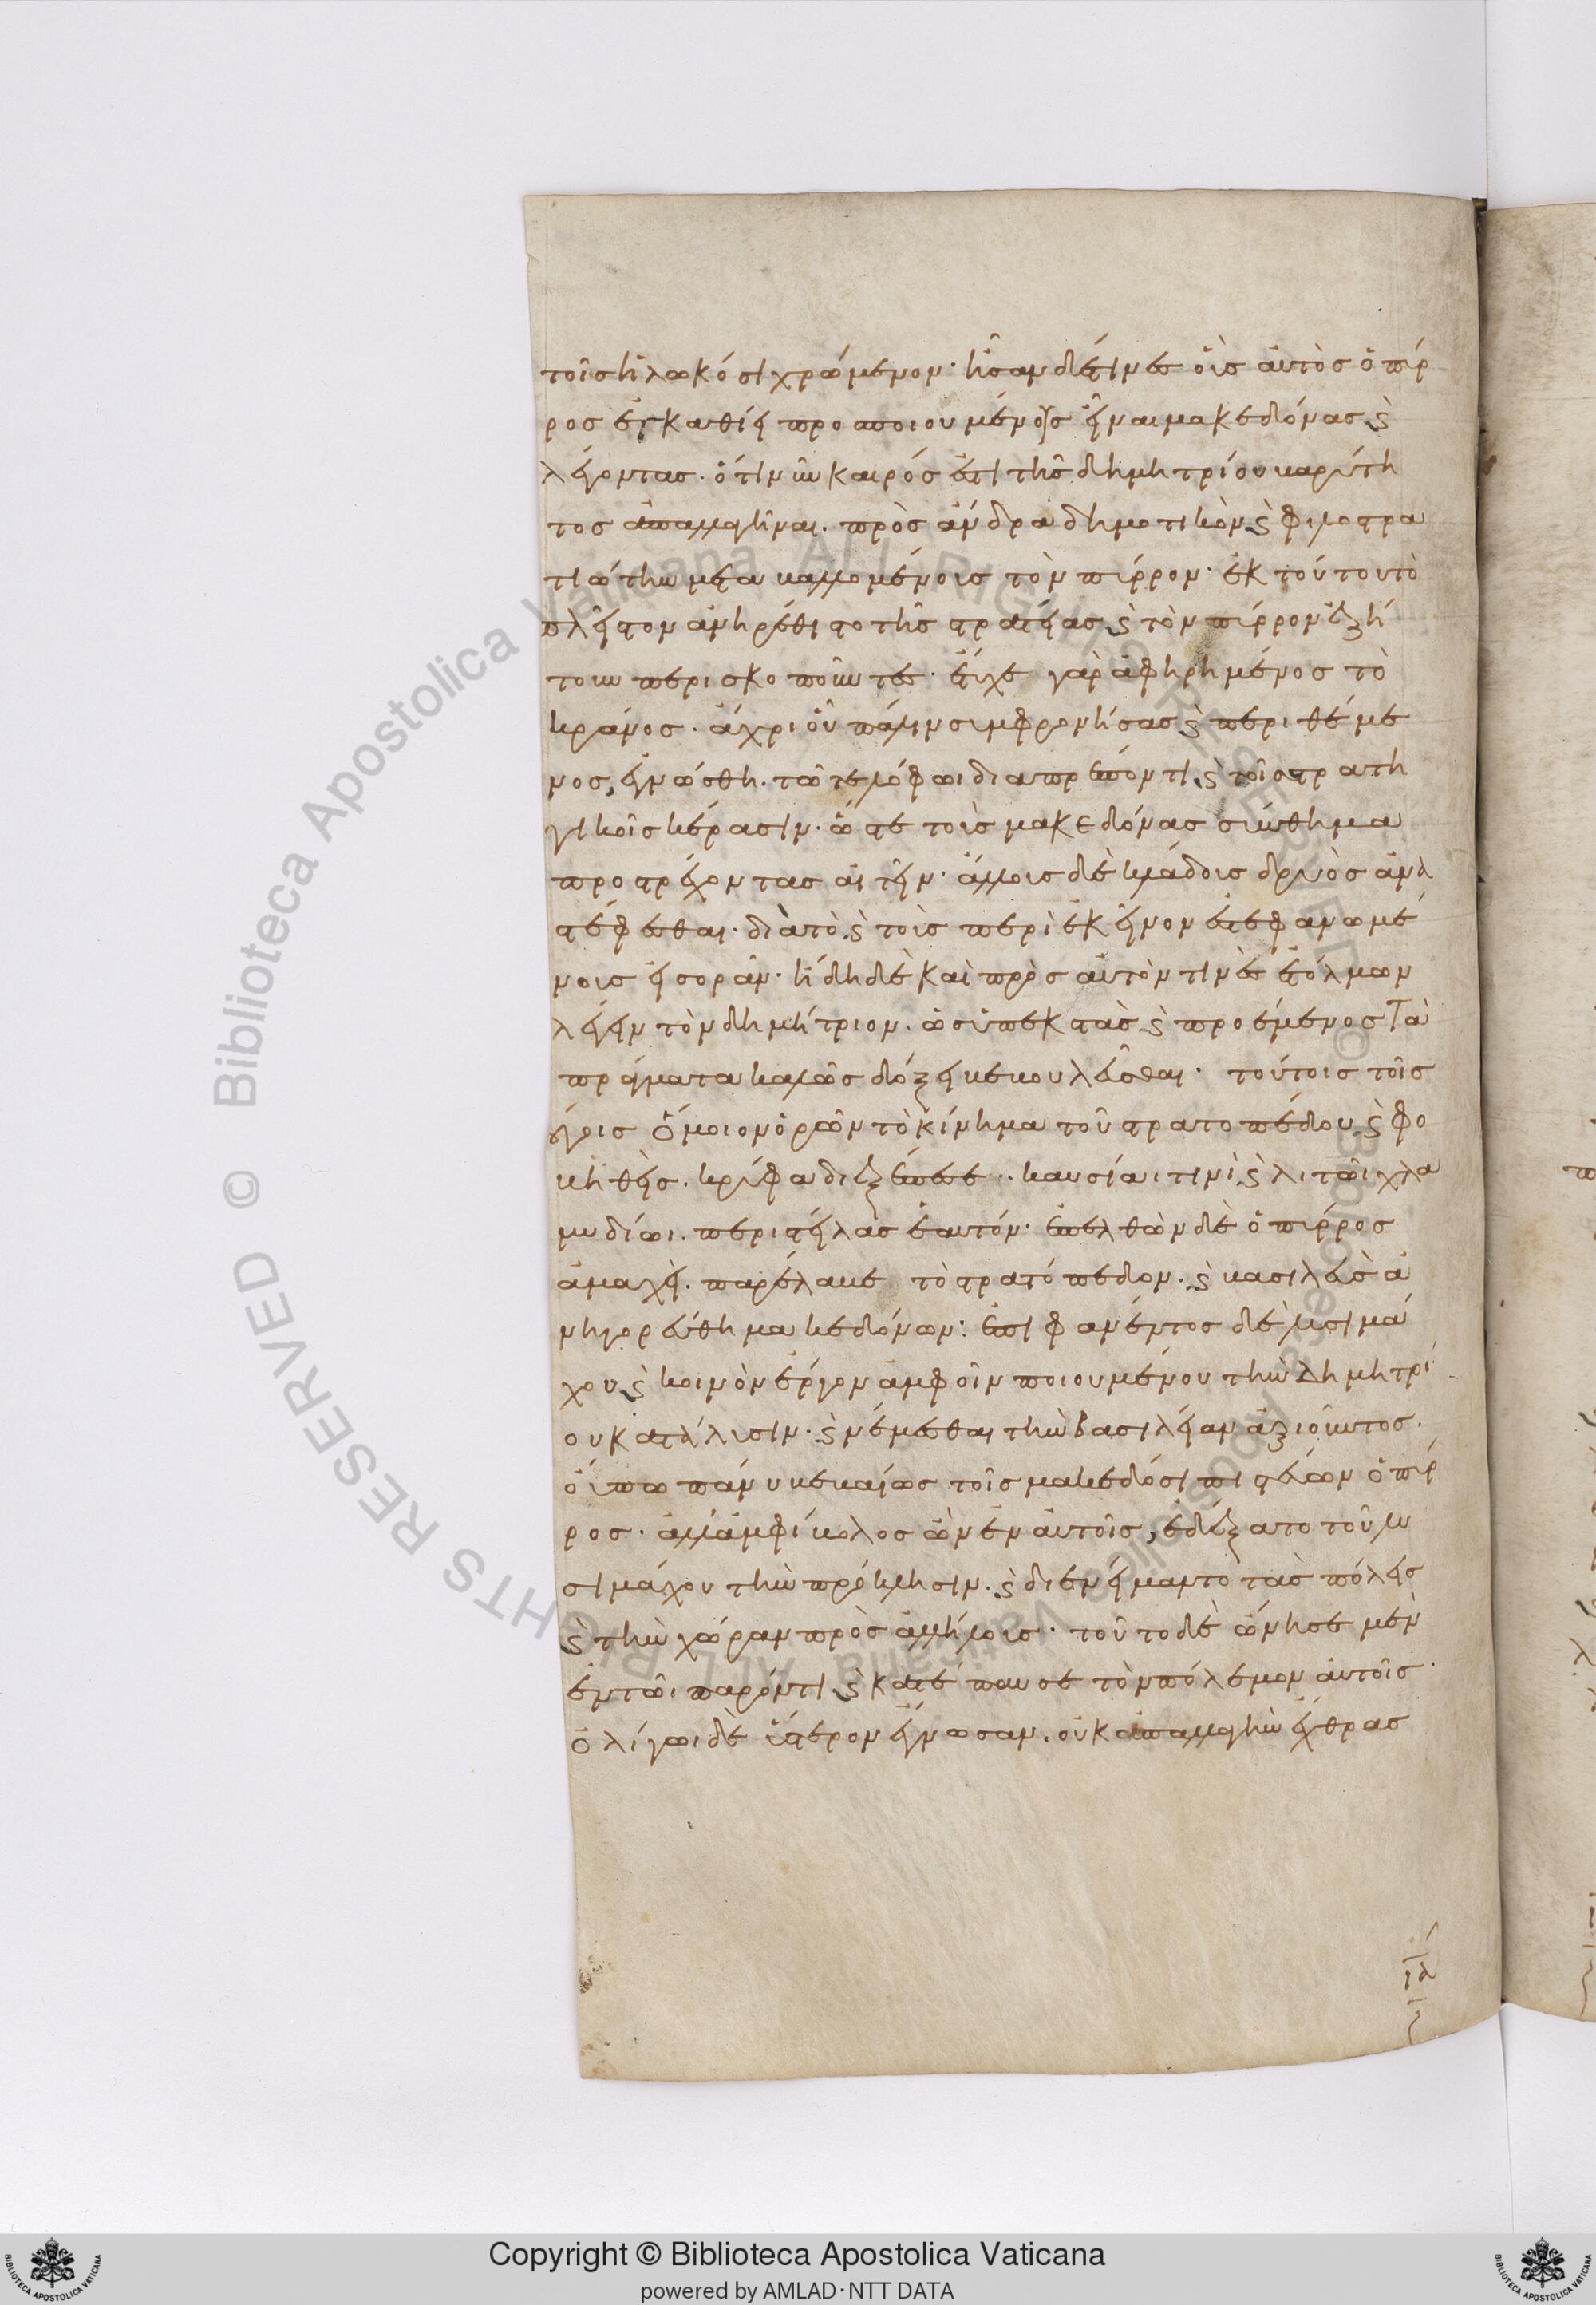 τοῖς ἡλωκόσι χρώμενον· ἦσαν δέ τινες οὓς αὐτὸς ὁ πύρ
ρος ἐγκαθίει προσποιουμένους εἶναι μακεδόνας καὶ
λέγοντας· ὅτι νῦν καιρός ἐστι τῆς δημητρίου βαρύτη
τος ἀπαλλαγῆναι. πρὸς ἄνδρα δημοτικὸν καὶ φιλοστρα
τιώτην μεταβαλλομένους τὸν πύρρον· ἐκ τούτου τὸ
πλεῖστον ἀνηρέθιστο τῆς στρατείας καὶ τὸν πύρρον ἐζή
τουν περισκοποῦντες· ἔτυχε γὰρ ἀφηρημένος τὸ
κράνος· ἄχρι οὗ πάλιν συμφρονήσας καὶ περιθέμε
νος, ἐγνώσθη. τῶ τε λόφωι διαπρέποντι, καὶ τοῖς τρατη
γικοῖς κέρασιν· ὥστε τοὺς μακεδόνας σύνθημα
προστρέχοντας αἰτεῖν· ἄλλους δὲ κλάδοις δρυὸς ἀνα
στέφεσθαι· διὰ τὸ καὶ τοὺς περὶ ἐκεῖνον ἐστεφανωμέ
νους εἰσορᾶν· ἤδη δὲ καὶ πρὸς αὐτὸν τινὲς ἐτόλμων
λέγειν τὸν δημήτριον. ὡς ὑπεκστὰς καὶ προέμενος τὰ
πράγματα καλῶς δόξει βεβουλεῦσθαι· τούτοις τοῖς
λόγοις ὅμοιον ὁρῶν τὸ κίνημα τοῦ στρατοπέδου καὶ φο
βηθεὶς. κρύφα διεξέπεσε· καυσίαι τινὶ καὶ λιτῶι χλα
μυδίωι. περιστείλας ἑαυτόν· ἐπελθὼν δὲ ὁ πύρρος
ἀμαχεὶ. παρέλαβε τὸ στρατόπεδον. καὶ βασιλεὺς ἀ
νηγορεύθη μακεδόνων: ἐπιφανέντος δὲ λυσιμά
χου καὶ κοινὸν ἔργον ἀμφοῖν ποιουμένου τὴν δημητρί
ου κατάλυσιν· καὶ νέμεσθαι τὴν βασιλείαν ἀξιοῦντος.
οὔπω πάνυ βεβαίως τοῖς μακεδόσι πιστεύων ὁ πύρ
ρος· ἀλλ' ἀμφίβολος ὢν ἐν αὐτοῖς, ἐδέξατο τοῦ λυ
σιμάχου τὴν πρόκλησιν. καὶ διενείμαντο τὰς πόλεις
καὶ τὴν χώραν πρὸς ἀλλήλους· τοῦτο δὲ ὤνησε μὲν
ἐν τῶι παρόντι. καὶ κατέπαυσε τὸν πόλεμον αὐτοῖς·
ὀλίγωι δὲ ὕστερον ἔγνωσαν. οὐκ ἀπαλλαγὴν ἔχθρας
ιδ
Copyright © Biblioteca Apostolica Vaticana
powered by AMLAD·NTT DATA